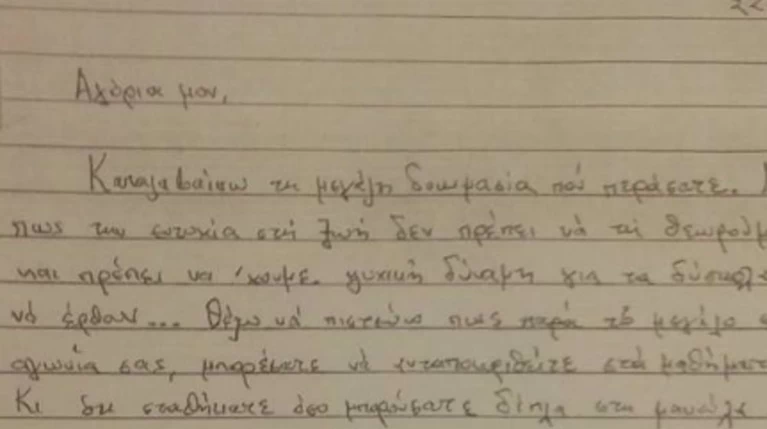 Αγόρια μου,
Καταλαβαίνω τη μεγάλη δοκιμασία πού περάσατε.
πως την ευτυχία στή ζωή δεν πρέπει νά τη θεωρούμ
και πρέπει να 'χουμε ψυχική δύναμη για τα δύσκολ
νά έρθουν... Θέλω νά πιστεύω πως παρά τό μεγάλο
αγωνία σας, μπορέσατε νά ανταποκριθείτε στά μαθήματ
Κι δε σταθήκατε όσο μπορούσατε δίπλα στη μανούλα